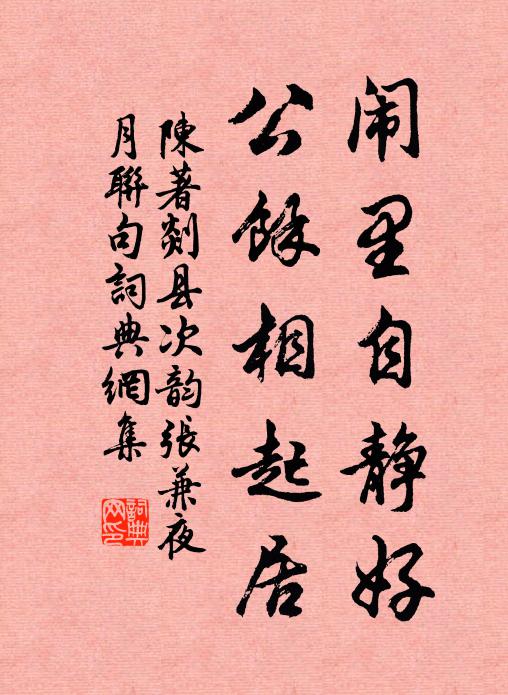 闹里自静好
公馀相起居
陳著剡县次韵張兼夜
月聯句詞典網集
詞典网印